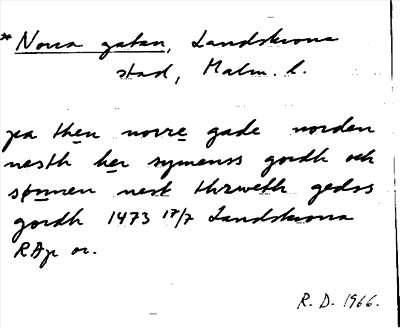 *Norra gatan, Landskrona
stad, Malm. l.
pa then norre gade norden
nesth her symenss gordh och
sønnen nest thrweth gedss
gordh 1473 17/7 Landskrona
RAp or.
R. D. 1966.